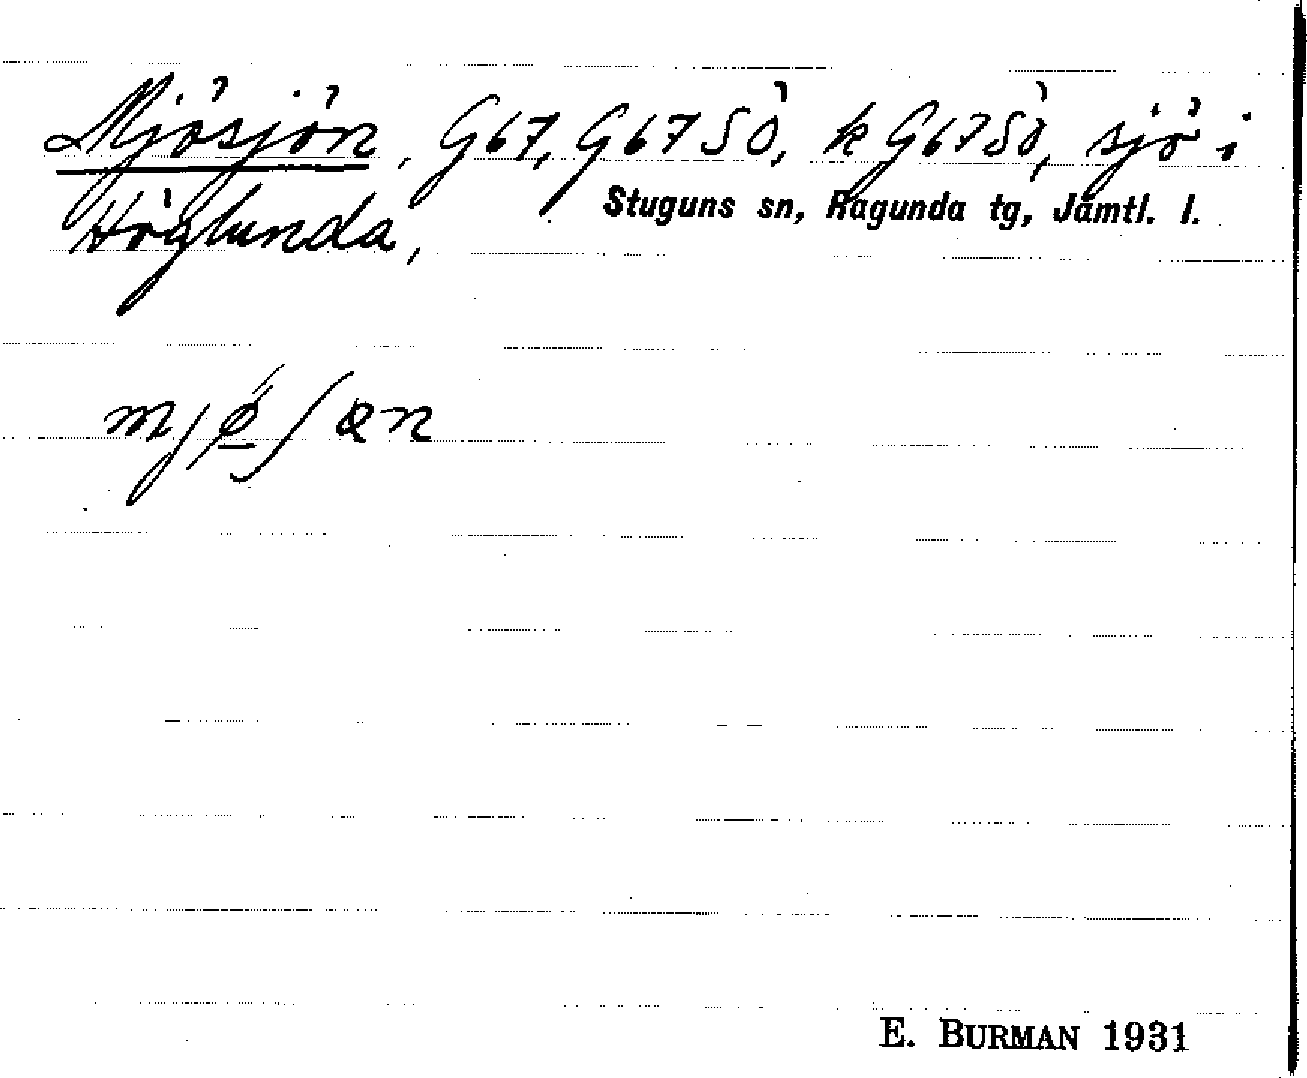 Mjösjön, G67, G67SÖ, k G67SÖ, sjö i
Höglunda, Stuguns sn, Ragunda tg, Jämtl. l.
E. BURMAN 1931